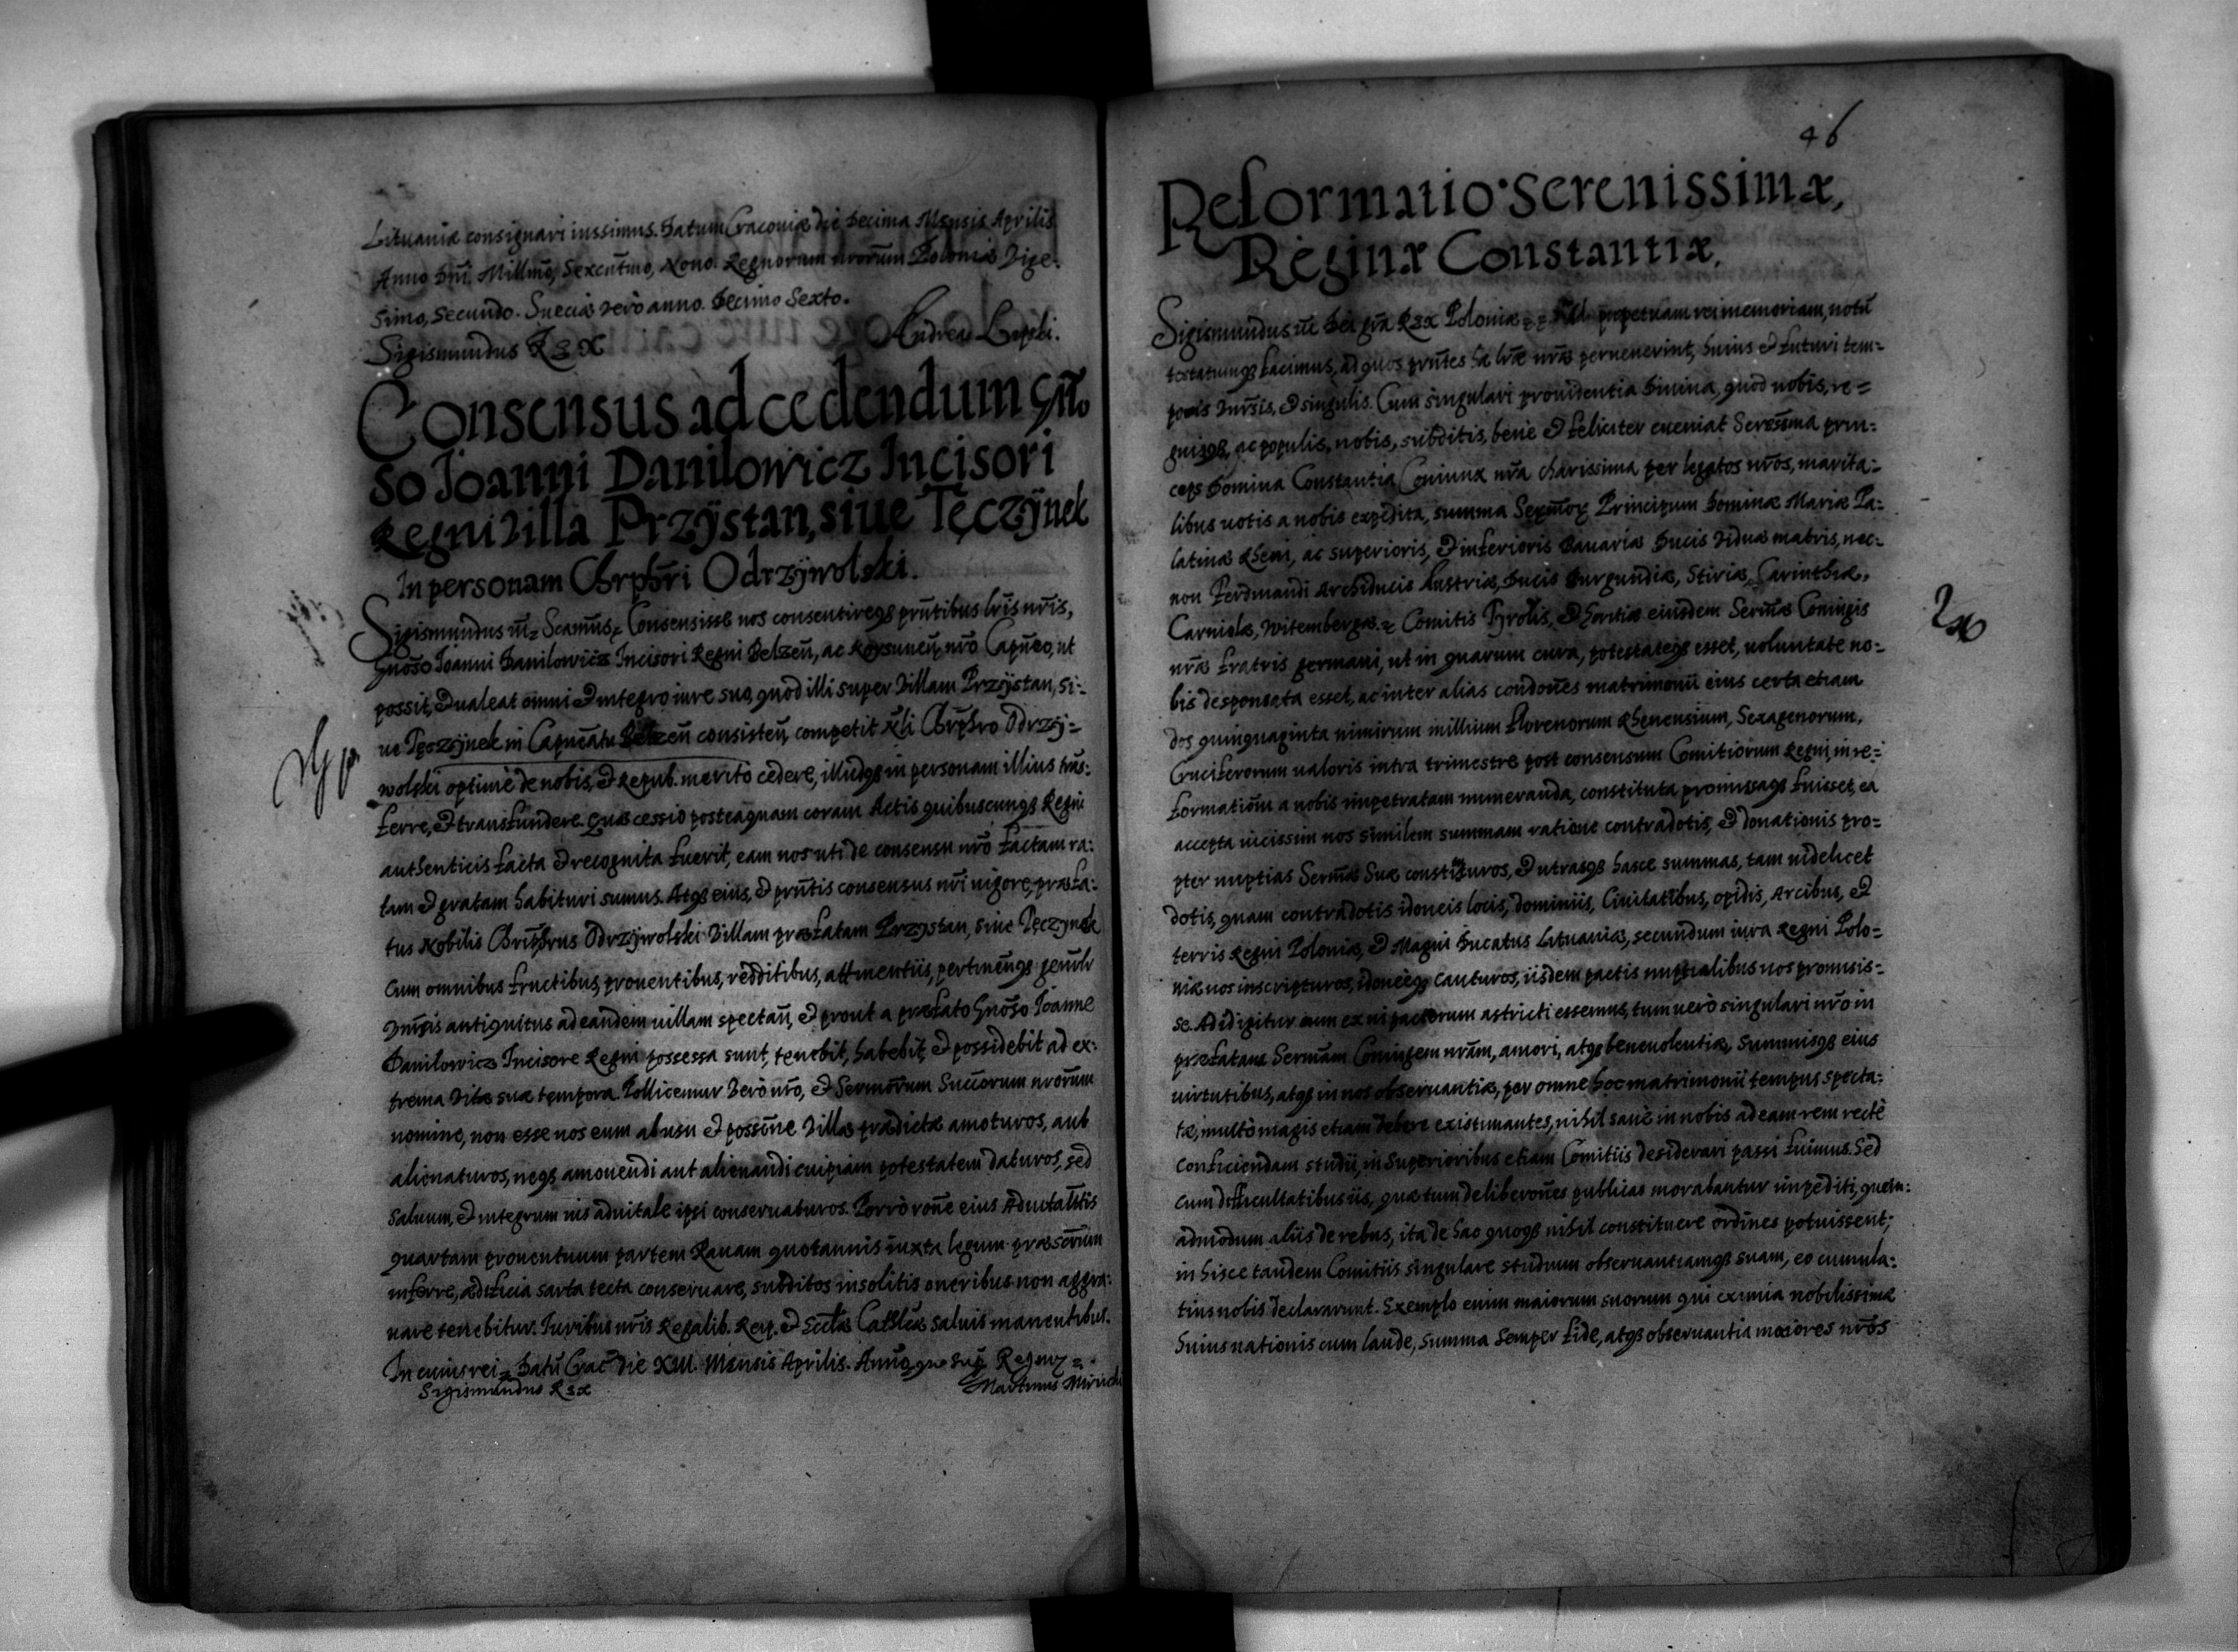 Lituaniæ consignari iussimus. Datum Cracouiæ die Decima Mensis Aprilis
Anno Dñi. Millmo, Sexcntmo, Nono. Regnorum nrorum Poloniæ Vige.
simo, Secundo. Sueciæ vero anno. Decimo Sexto.
Sigismundus Rex Andreas Lipski.
Consensus ad cedendum Gño
so Joanni Danilowicz Incisori
Regni Villa Przÿstan, siue Tęczÿnek
In personam Chrphri Odrzÿwolski.
Sigismundus Consensisse nos consentireqz prñtibus lris nris,
Gnoso Joanni Danilowicz Incisori Regni Belzeñ, ac nro Capneo, ut
possit, et ualeat omni et integro iure suo, quod illi super Villam Przÿstan, si-
ue Tęczÿnek in Capneatu Belzeñ consisteñ competit Nli Chrphro Odrzÿ=
wolski optime de nobis, et Repub. merito cedere, illudqz in personam illius trãs-
ferre, et transfundere. Quæ cessio posteaquam coram Actis quibuscunqz Regni
authenticis facta et recognita fuerit, eam nos uti de consensu nro factam ra-
tam et gratam habituri sumus. Atqz eius, et prñtis consensus nri uigore, præfa-
tus Nobilis Chrphrus Odrzÿwolski Villam præfatam Przystan, siue Tęczynek
cum omnibus fructibus, prouentibus, redditibus, attinentiis, pertineñqz
antiquitus ad eandem uillam spectañ, et prout a præfato Gnoso Joanne
Danilowicz Incisore Regni possessa sunt, tenebit, habebit, et possidebit ad ex-
trema vitæ suæ tempora. Pollicemur vero nro, et Sermorum Succorum nrorum
nomine, non esse nos eum ab usu et possone Villæ prædictæ amoturos, aut
alienaturos, neqz amouendi aut alienandi cuipiam potestatem daturos, sed
saluum, et integrum ius aduitale ipsi conseruaturos. Porro rone eius Aduitalitatis
quartam prouentuum partem Rauam quotannis iuxta legum præscrum
inferre, ædificia sarta tecta conseruare, subditos insolitis oneribus non aggra-
uare tenebitur. Iuribus nris Regalib. Reip. et Ecclæ Cathlcæ saluis manentibus.
In cuius rei Datũ Crac die XIII. Mensis Aprilis. Anno quo sup
Sigismundus Rex Martinus
46
Reformatio Serenissimæ,
Reginæ Constantiæ.
Sigismundus Dei gra Rex Poloniæ Ad perpetuam rei memoriam, notũ
testatumqz facimus, ad quos prñtes hæ lræ nræ peruenerint, huius et futuri tem-
poris Vnrsis, et singulis. Cum singulari prouidentia Diuina, quod nobis, re=
gnisqz, ac populis, nobis, subditis, bene et feliciter eueniat Seressma prin-
ceps Domina Constantia Coniunx nra charissima per legatos nros, marita-
libus uotis a nobis expedita, summa Principum Dominæ Mariæ Pa-
latinæ Rheni, ac superioris, et inferioris Bauariæ Ducis Viduæ matris, nec-
non Ferdinandi Archiducis Austriæ, Ducis Burgundiæ, Stiriæ, Carinthiæ,
Carniolæ, Witembergæ. Comitis Tyrolis, et Goritiæ eiusdem Sermæ Coniugis
nræ fratris germani, ut in quarum cura, potestateqz esset, uoluntate no-
bis desponsata esset, ac inter alias condones matrimonii eius certa etiam
dos quinquaginta nimirum millium florenorum Rhenensium, Sexagenorum,
Cruciferorum ualoris intra trimestre post consensum Comitiorum Regni, in re-
formationẽ a nobis impetratam numeranda, constituta promissaqz fuisset, ea
accepta uicissim nos similem summam ratione contradotis, et donationis pro-
pter nuptias Sermæ Suæ constituros, et utrasqz hasce summas, tam uidelicet
dotis, quam contradotis idoneis locis, dominiis, Ciuitatibus, opidis, Arcibus, et
terris Regni Poloniæ, et Magni Ducatus Lituaniæ, secundum iura Regni Polo-
niæ nos inscripturos, idoneeqz cauturos, iisdem pactis nuptialibus nos promisis-
se. Ad id igitur cum ex ui pactorum astricti essemus, tum uero singulari nro in
præfatam Sermam Coniugem nram, amori, atqz beneuolentiæ, summisqz eius
uirtutibus, atqz in nos obseruantiæ, per omne hoc matrimonii tempus specta-
tæ, multo magis etiam debere existimantes, nihil sane in nobis ad eam rem recte
conficiendam studii, in Superioribus etiam Comitiis desiderari passi fuimus. Sed
cum difficultatibus iis, quæ tum deliberones publicas morabantur impediti, quem-
admodum aliis de rebus, ita de hac quoqz nihil constituere ordines potuissent;
in hisce tandem Comitiis singulare studium obseruantiamqz suam, eo cumula-
tius nobis declararunt. Exemplo enim maiorum suorum qui eximia nobilissimæ
huius nationis cum laude, summa semper fide, atqz obseruantia maiores nros